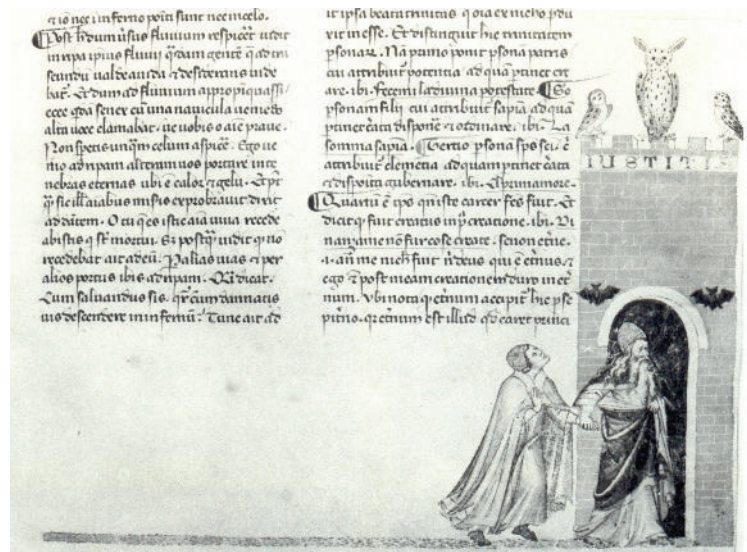 ⁊ iõ nec inferno poĩti sunt nec in celo.
Post h̃ dum ũsus fluvium respicẽt vidit
in ripa ipius fluvii q̃dam gentẽ q̃ ad trã
seundũ valde avida ⁊ desiderans vide
bat̃. Et dum ad fluvium appropiquassẽt
ecce q̃dã senex cũ una navicula veniẽs
alta voce clamabat. ve vobis o aĩe prave.
Non speretis unq̃m celum aspicẽ. Ego ve
nio ad ripam alteram vos portare in te
nebras eternas ubi ẽ calor ⁊ gelu. Et pꝰ
q̃ sic illas aĩabus misis exprobravit dixit
ad dãtem. O tu q̃ es istic aĩa viva recede
ab istis q̃ sr̃ mortui. Sꝫ postq̃ vidit q̃ nõ
recedebat ait ad eũ. P alias vias ⁊ per
alios portus ibis ad ripam. Q̃ı dicat.
Cum salvandus sis. q̃r̃ cum damnatis
vis descendere in infernũ. Tunc ait ad
it ipsa beata trinitas q̃ oĩa ex nichõ ꝓdu
xit in esse. Et distinguit hic trinitatem
psonarꝫ. Nã primo ponit psonã patris
cui attribuit̃ potentia ad quã ptinet cre
are. ibi. Fecemi la divina potestate. So
psonam filii cui attribuit̃ sapĩa ad quã
ptinet cr̃ata dispone ⁊ ordinare. ibi. La
somma sapĩa. Tertio psona sps sci. cũ
attribuit̃ clemẽtia ad quam ptinet cr̃ata
⁊ disposita gubernare. ibi. El primamore.
Quartũ ẽ tp̃o qñ iste carcer fc̃s fuit. Et
dicit q̃ fuit creatus in p̃ creatione. ibi. Di
nançame nõ fur cose create. se non etñe.
.i. añ me nich fuit ñ deus qui ẽ etñus. ⁊
ego ⁊ post meam creationem duro in etẽ
num. Ubi nota q̃ etñum accipit̃ hic p se
pitño. q̃r etñum est illud q̃d caret princi
IUSTITIA